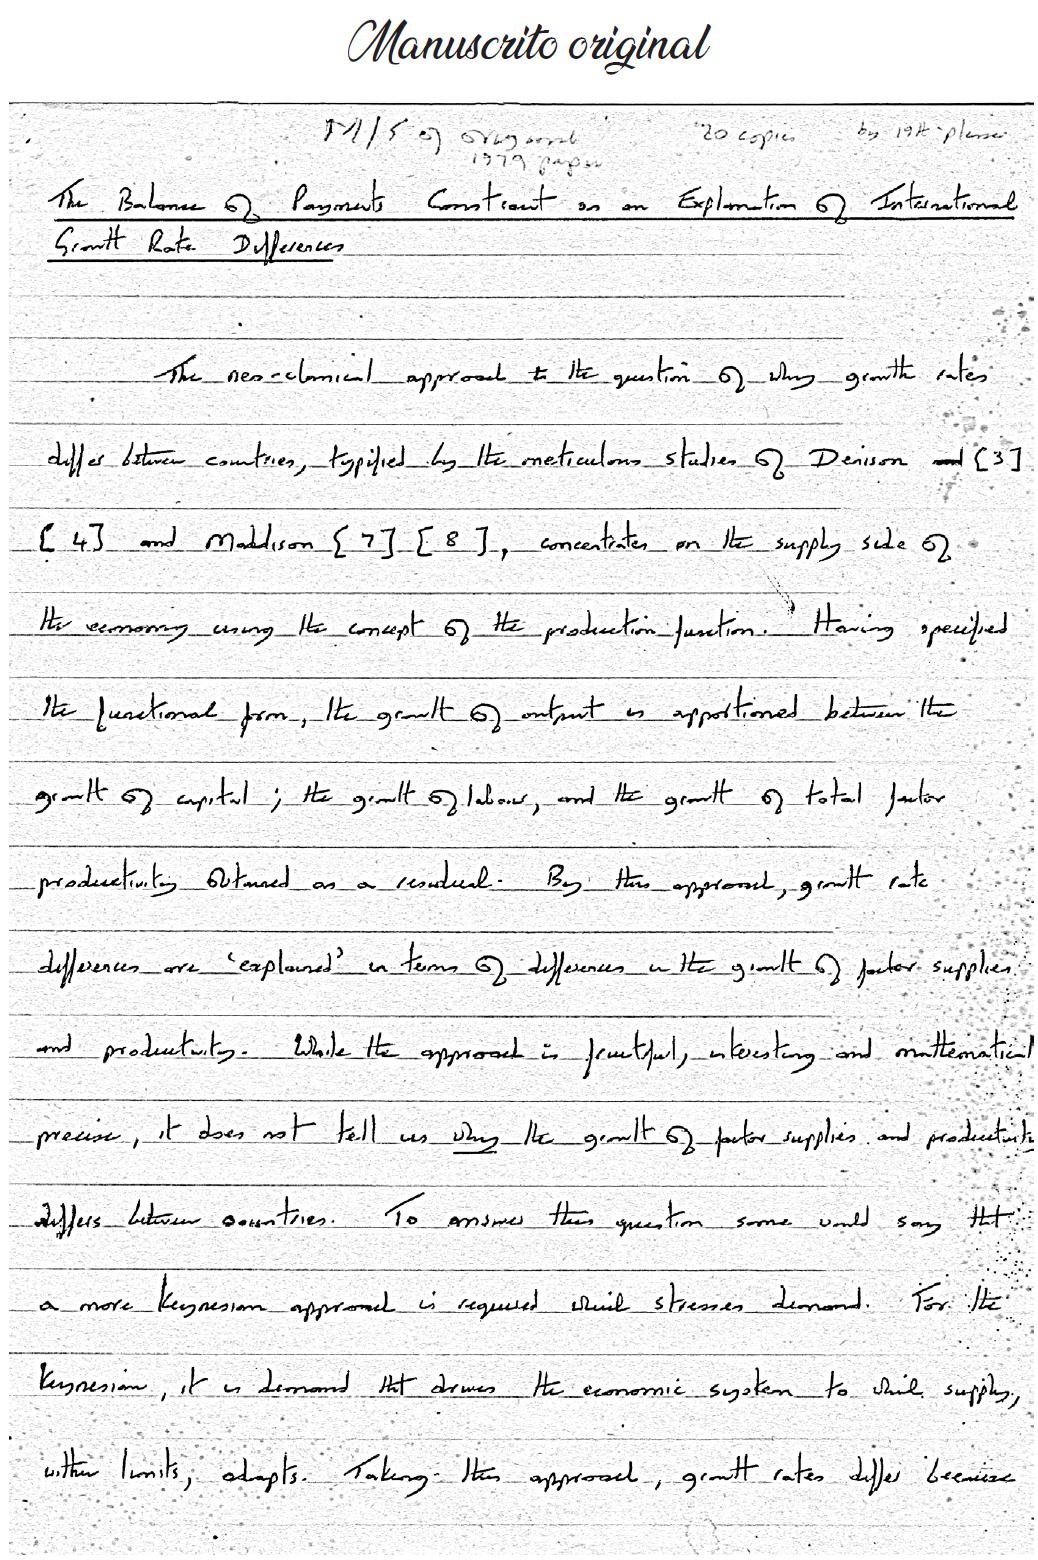 Manuscrito original
M/S of original 20 copies by 19th please
1979 paper
The Balance of Payments Constraint as an Explanation of International
Growth Rate Differences
The neo-classical approach to the question of why growth rates
differ between countries, typified by the meticulous studies of Denison and [3]
[4] and Maddison [7] [8], concentrates on the supply side of
the economy using the concept of the production function. Having specified
the functional form, the growth of output is apportioned between the
growth of capital; the growth of labour, and the growth of total factor
productivity obtained as a residual. By this approach, growth rate
differences are 'explained' in terms of differences in the growth of factor supplies
and productivity. While the approach is fruitful, interesting and mathematical
precise, it does not tell us why the growth of factor supplies and productivity
differs between countries. To answer this question some would say that
a more Keynesian approach is required which stresses demand. For the
Keynesian, it is demand that drives the economic system to which supply,
within limits, adapts. Taking this approach, growth rates differ because